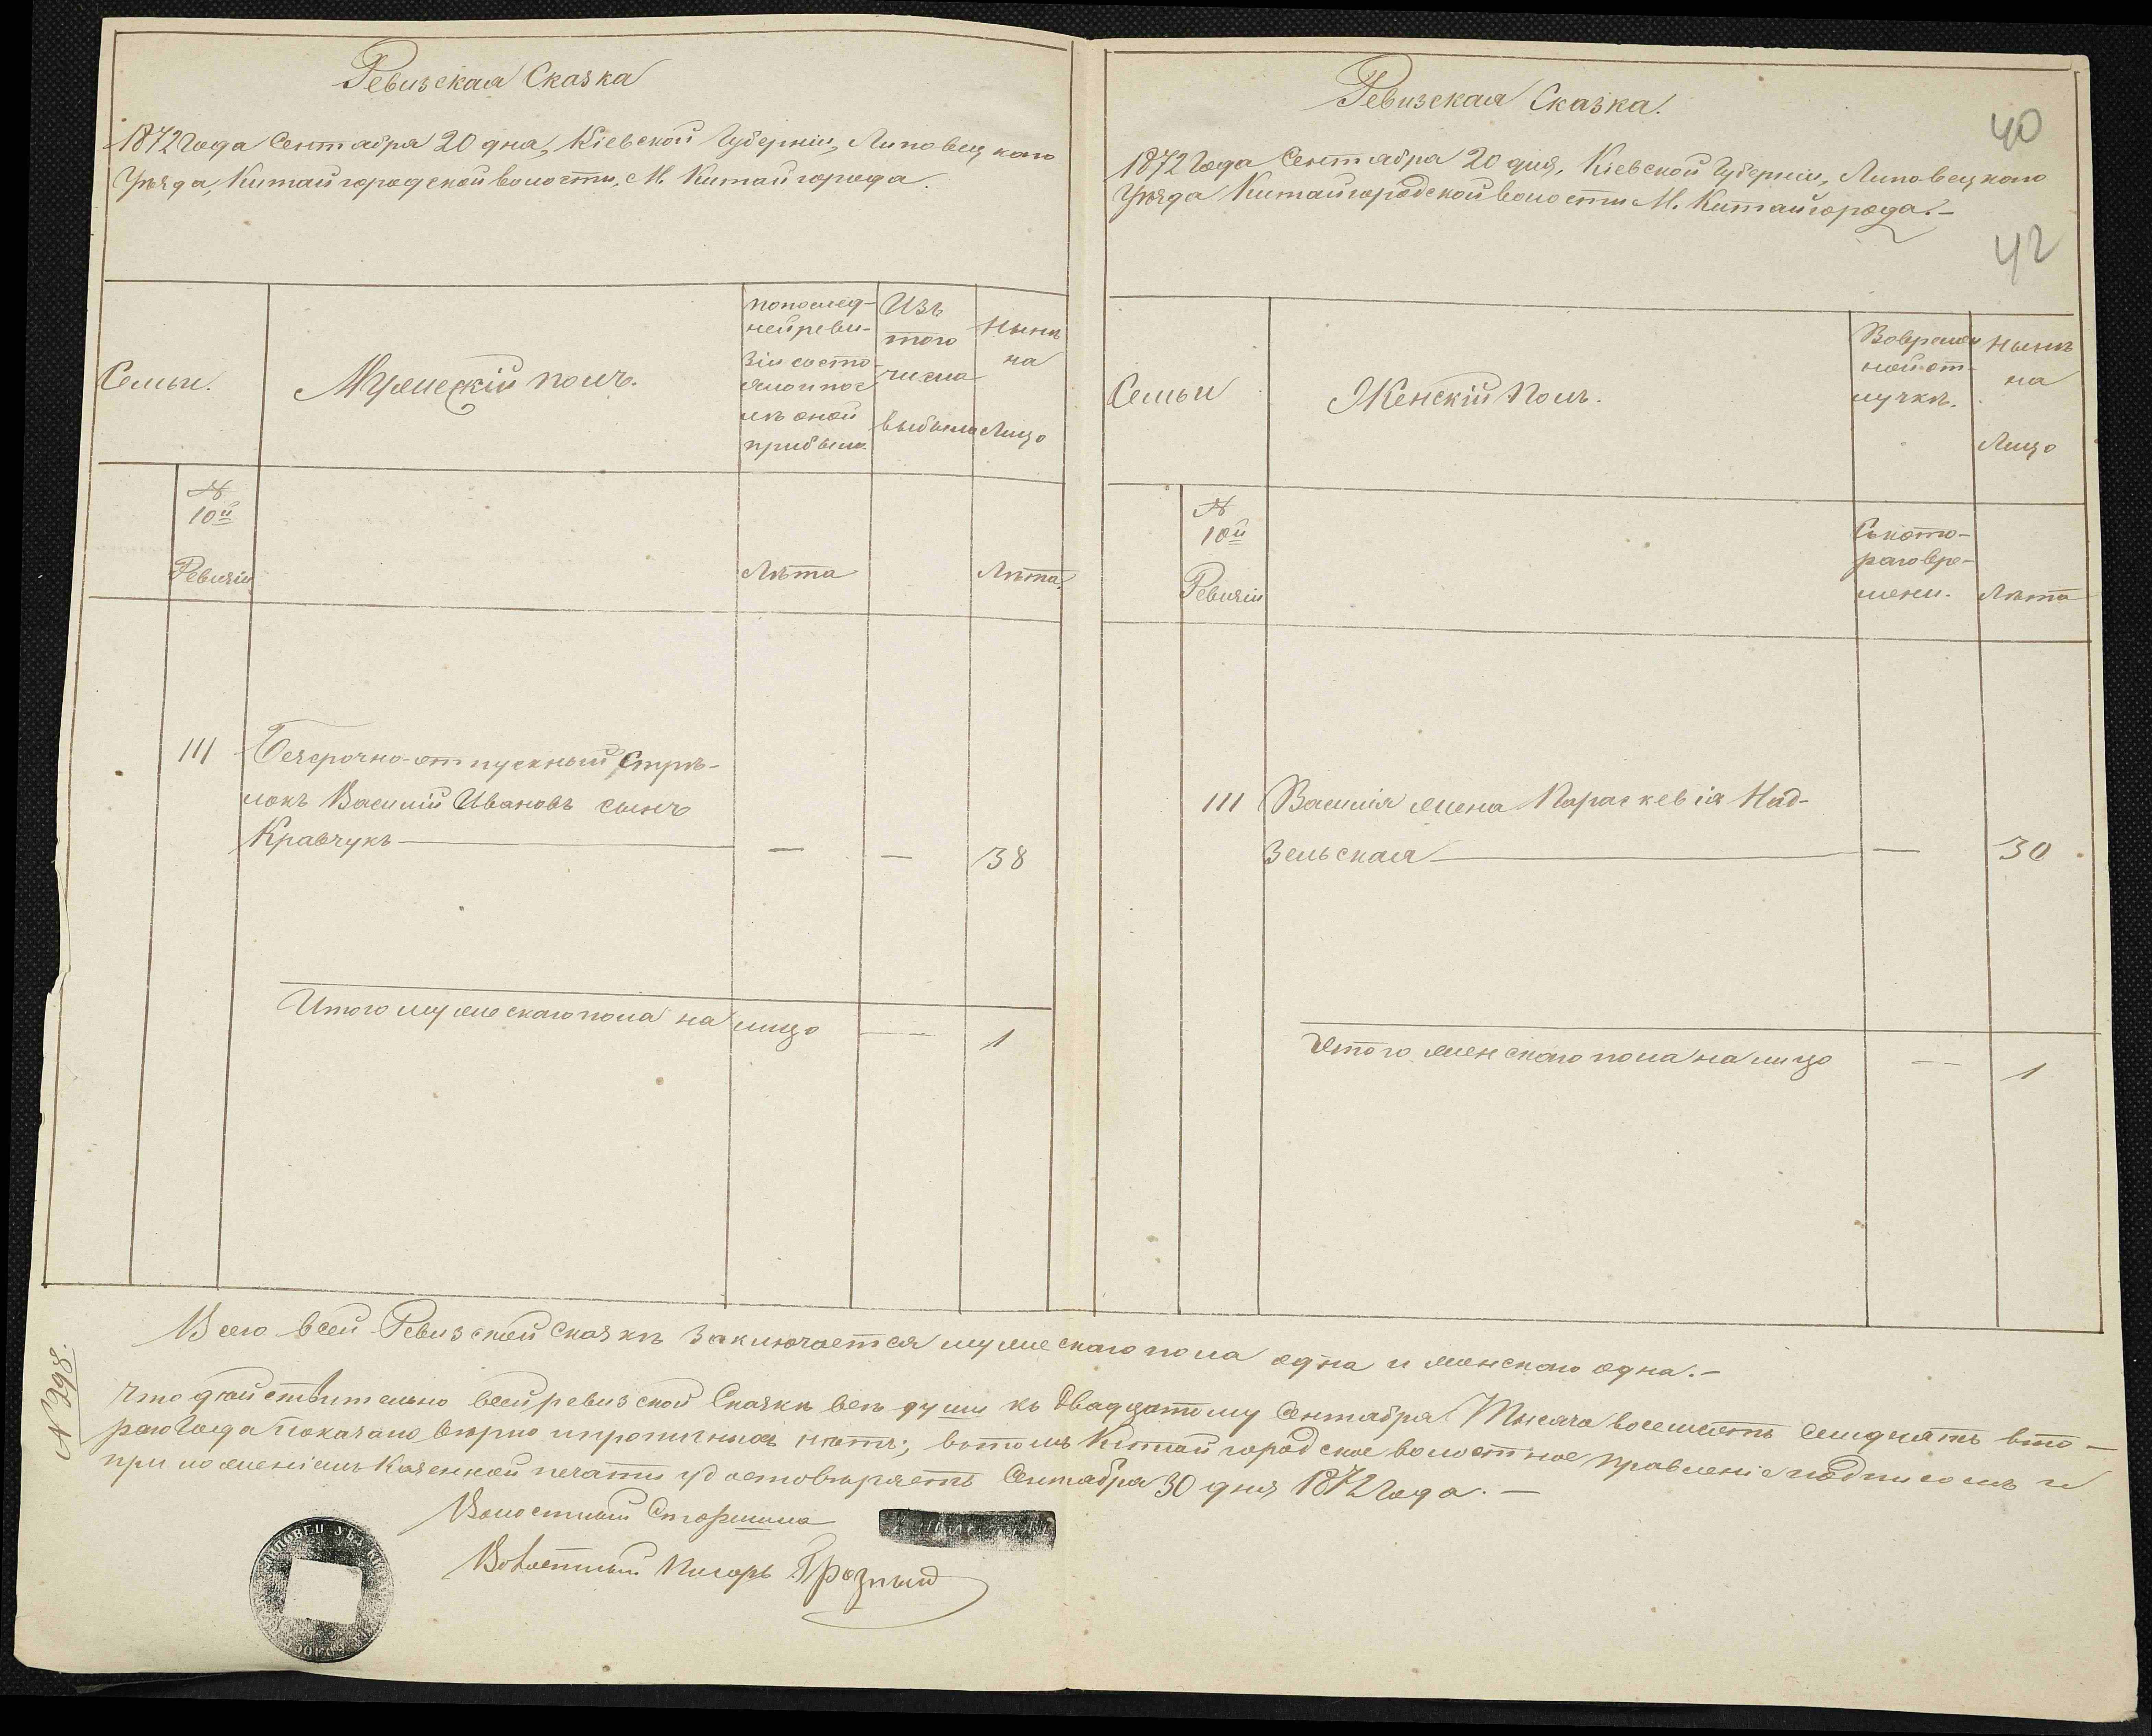 Ревизская Сказка
1872 Года Сентября 20 дня, Кіевской Губерніи, Липовецкаго
Уѣзда, Китайгородской волости, М. Китайгорода.
Семьи.
Мужескій полъ.
По послед-
ней реви-
зіи состо-
яло и пос
лѣ оной
прибыло.
Изъ
того
числа
выбыло
Нынѣ
на
Лицо
№
10й
Ревизіи
Лѣта
Лѣта
111
Безсрочно-отпускный Стрѣ-
локъ Василій Ивановъ сынъ
Кравчукъ — — — 38
Итого мужескаго пола на лицо — 1
Ревизская Сказка.
40
1872 Года Сентября 20 дня, Кіевской Губерніи, Липовецкаго
Уѣзда Китайгородской волости М. Китайгорода.-
42
Семьи
Женскій Полъ.
Во времен
ной от-
лучкѣ.
Нынѣ
на
Лицо
№
10й
Ревизіи
Съ кото-
раго вре-
мени.
Лѣта
111
Василія жена Параскевія Над-
зельская — — 30
Итого женскаго пола на лицо — 1
Всего всей Ревизской Сказкѣ заключается мужескаго пола одна и женскаго одна.-
№ 298.
Что дѣйствительно всей ревизской Сказкѣ всѣ души къ Двадцатому Сентября Тысяча восемсотъ семдесятъ вто-
раго Года показано вѣрно и прописныхъ нѣтъ; въ томъ Китайгородское волостное правленіе подписомъ и
приложеніемъ Казенной печати удостовѣряетъ Сентября 30 дня 1872 Года.-
Волостный Старшина
Волостный Писарь Грозный
ЛИПОВЕЦ УѢЗ